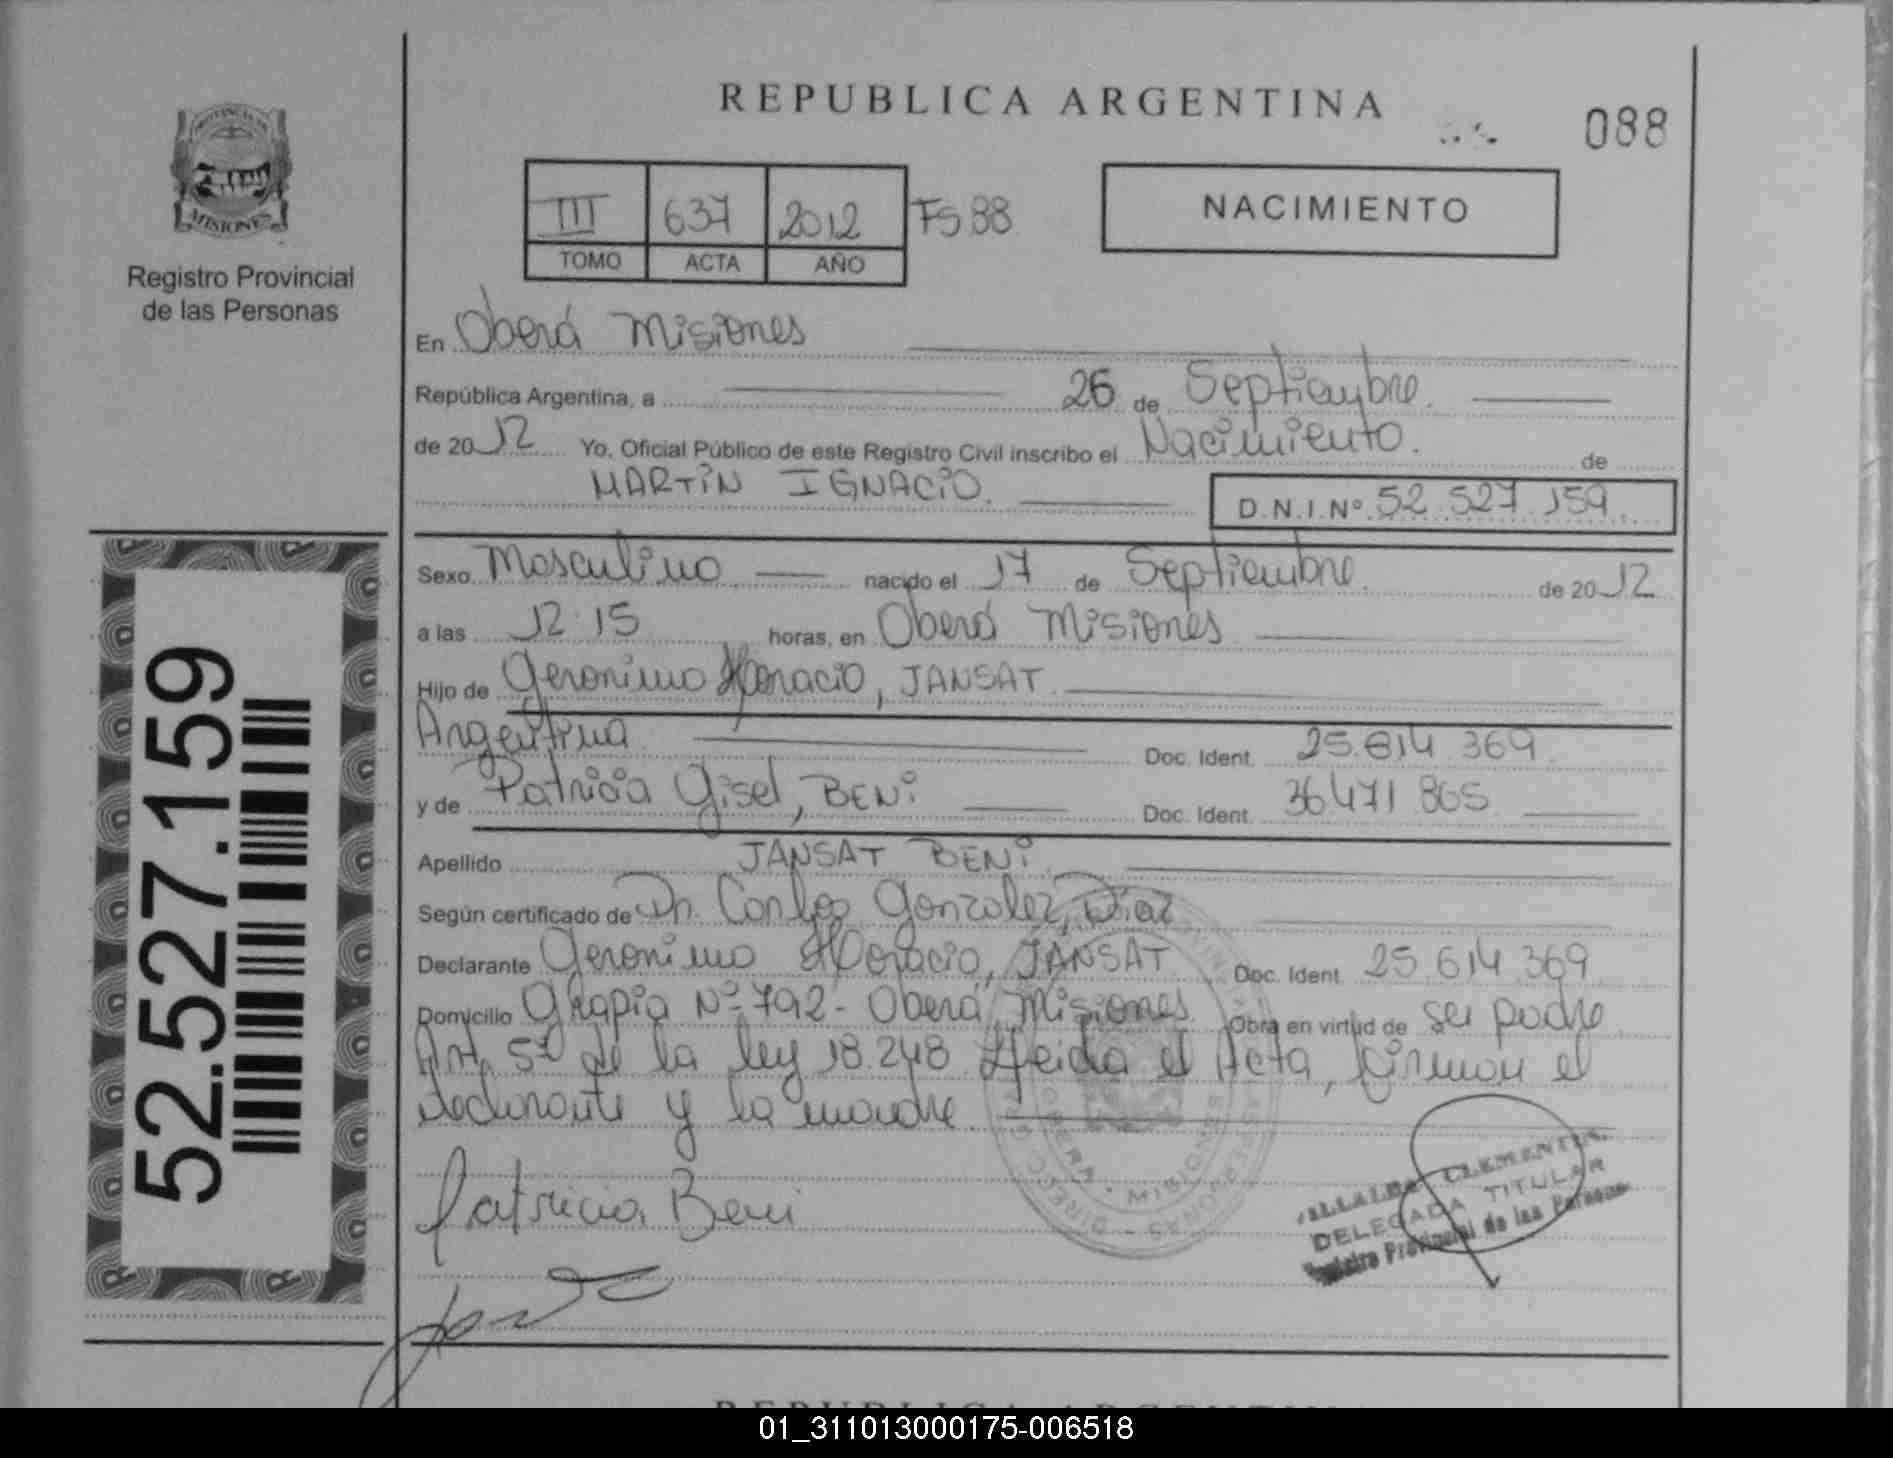 REPUBLICA ARGENTINA
088
PROVINCIA DE
MISIONES
Registro Provincial
de las Personas
III 637 2012 Fs 88
TOMO ACTA AÑO
NACIMIENTO
En Oberá Misiones
República Argentina, a 26 de Septiembre.
de 2012 Yo, Oficial Público de este Registro Civil inscribo el Nacimiento. de
MARTIN IGNACIO. D.N.I.Nº 52.527.159
Sexo Masculino nacido el 17 de Septiembre. de 2012
a las 12:15 horas, en Oberá Misiones
Hijo de Geronimo Horacio, JANSAT
Argentina Doc. Ident. 25.614.369.
y de Patricia Gisel, BENi Doc. Ident. 36.471.865
Apellido JANSAT BENi
Según certificado de Dr. Carlos Gonzalez, Diaz
Declarante Geronimo Horacio, JANSAT Doc. Ident. 25.614.369
Domicilio Nº 792 - Oberá Misiones Obra en virtud de ser padre
Art. 5º de la ley 18.248 Leida el Acta, firman el
declarante y la madre
Patricia Beni
OBERA - MISIONES
CLEMENTE
DELEGADA TITULAR
Registro Provincial de las Personas
52.527.159
REPUBLICA ARGENTINA
01_311013000175-006518